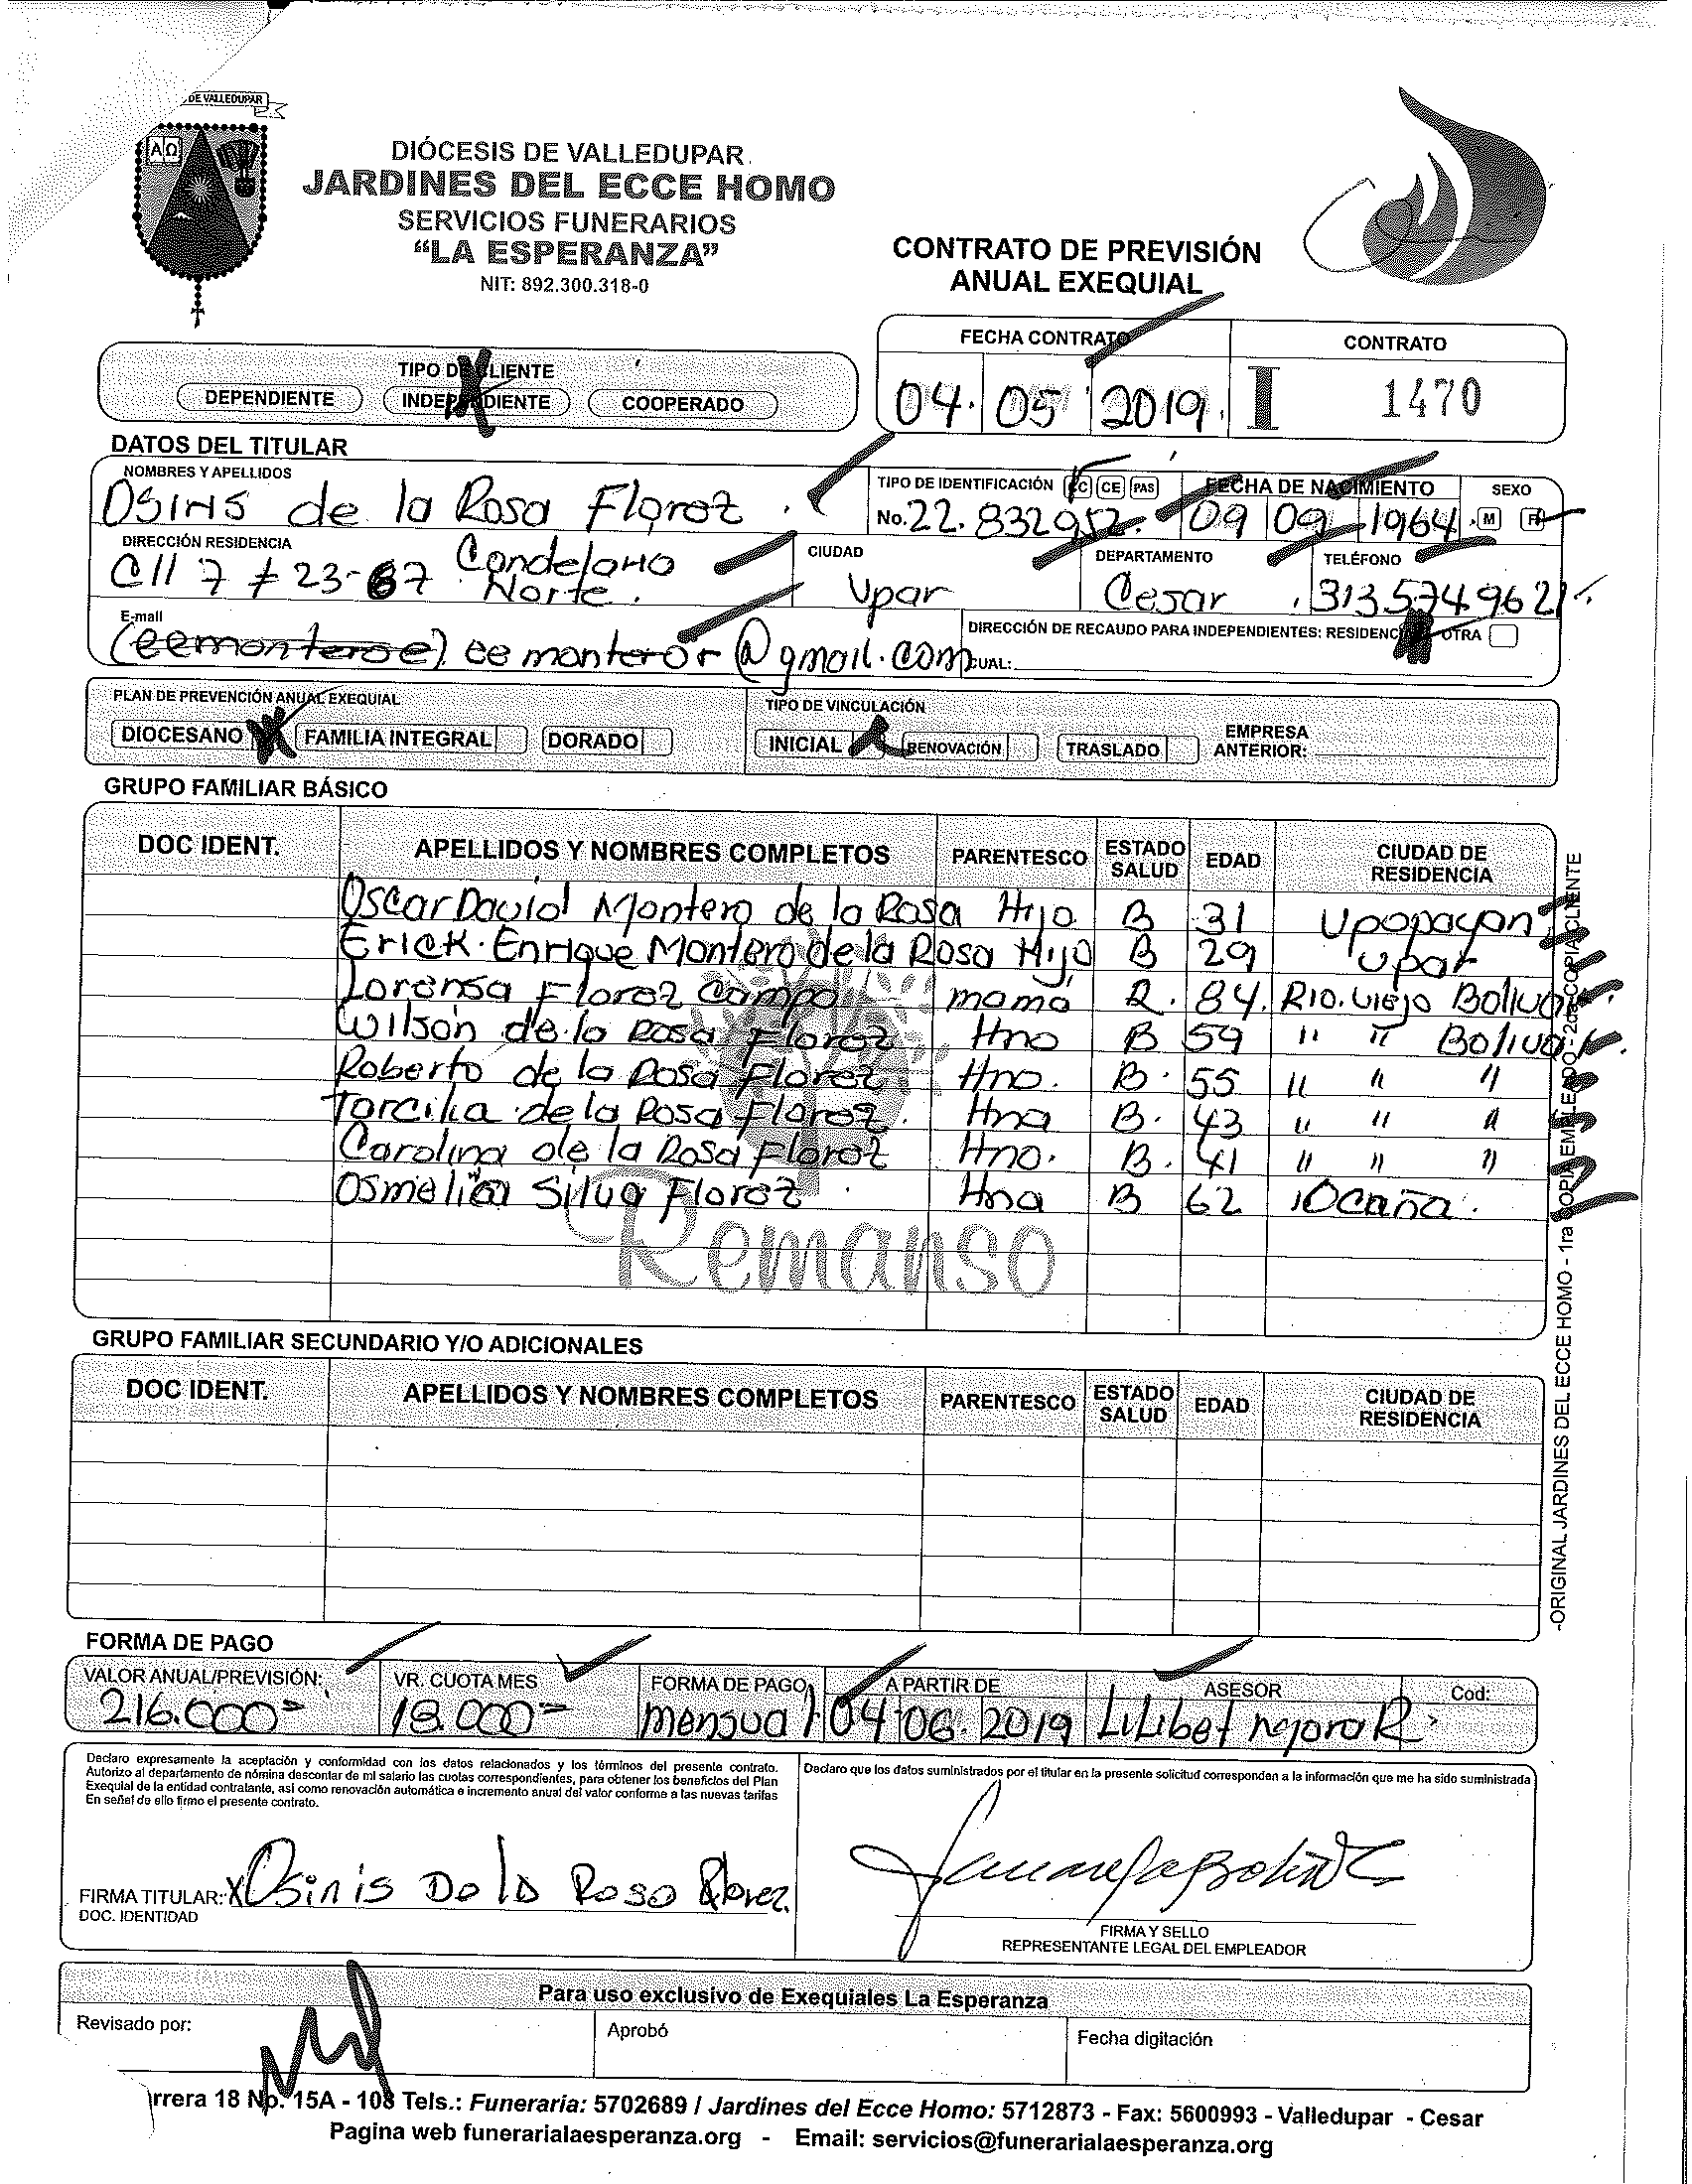 DE VALLEDUPAR
A Ω
DIÓCESIS DE VALLEDUPAR
JARDINES DEL ECCE HOMO
SERVICIOS FUNERARIOS
"LA ESPERANZA"
NIT: 892.300.318-0
CONTRATO DE PREVISIÓN
ANUAL EXEQUIAL
FECHA CONTRATO CONTRATO
04. 05 2019. I 1470
TIPO DE CLIENTE
DEPENDIENTE INDEPENDIENTE COOPERADO
DATOS DEL TITULAR
NOMBRES Y APELLIDOS TIPO DE IDENTIFICACIÓN CC CE PAS FECHA DE NACIMIENTO SEXO
OSINIS de la Rosa Florez No. 22.832952 09 09 1964 M F
DIRECCIÓN RESIDENCIA CIUDAD DEPARTAMENTO TELÉFONO
Cll 7 # 23-67 Candelaria Norte. Vpar Cesar 3135749621
E-mail DIRECCIÓN DE RECAUDO PARA INDEPENDIENTES: RESIDENC OTRA
(eemonteroe) eemonteror@gmail.com CUAL:
PLAN DE PREVENCIÓN ANUAL EXEQUIAL TIPO DE VINCULACIÓN
DIOCESANO FAMILIA INTEGRAL DORADO INICIAL RENOVACIÓN TRASLADO EMPRESA ANTERIOR:
GRUPO FAMILIAR BÁSICO
DOC IDENT. APELLIDOS Y NOMBRES COMPLETOS PARENTESCO ESTADO SALUD EDAD CIUDAD DE RESIDENCIA
Oscar David Montero de la Rosa Hijo B 31
Erick Enrique Montero de la Rosa Hijo B 29 Vpar
Lorensa Florez Campo mama R. 84. Rio. Viejo Bolivar
Wilson de la Rosa Florez Hno B 59 " " Bolivar
Roberto de la Rosa Florez Hno. B 55 " " "
Tarcilia de la Rosa Florez Hna B. 43 " " "
Carolina de la Rosa Florez Hno. B. 41 " " "
Silva Florez Hna B 62 Ocaña.
Remanso
GRUPO FAMILIAR SECUNDARIO Y/O ADICIONALES
DOC IDENT. APELLIDOS Y NOMBRES COMPLETOS PARENTESCO ESTADO SALUD EDAD CIUDAD DE RESIDENCIA
-ORIGINAL JARDINES DEL ECCE HOMO - 1ra COPIA EMPLEADO - 2da COPIA CLIENTE
FORMA DE PAGO
VALOR ANUAL/PREVISIÓN: VR. CUOTA MES FORMA DE PAGO A PARTIR DE ASESOR Cod:
216.000= 18.000= mensual 04 06. 2019 Lilibet R
Declaro expresamente la aceptación y conformidad con los datos relacionados y los términos del presente contrato.
Autorizo al departamento de nómina descontar de mi salario las cuotas correspondientes, para obtener los beneficios del Plan
Exequial de la entidad contratante, asi como renovación automática e incremento anual del valor conforme a las nuevas tarifas
En señal de ello firmo el presente contrato.
Declaro que los datos suministrados por el titular en la presente solicitud corresponden a la información que me ha sido suministrada
FIRMA TITULAR: x Osinis De la Rosa Florez
DOC. IDENTIDAD
FIRMA Y SELLO
REPRESENTANTE LEGAL DEL EMPLEADOR
Para uso exclusivo de Exequiales La Esperanza
Revisado por: Aprobó Fecha digitación
rrera 18 No. 15A - 108 Tels.: Funeraria: 5702689 / Jardines del Ecce Homo: 5712873 - Fax: 5600993 - Valledupar - Cesar
Pagina web funerarialaesperanza.org - Email: servicios@funerarialaesperanza.org